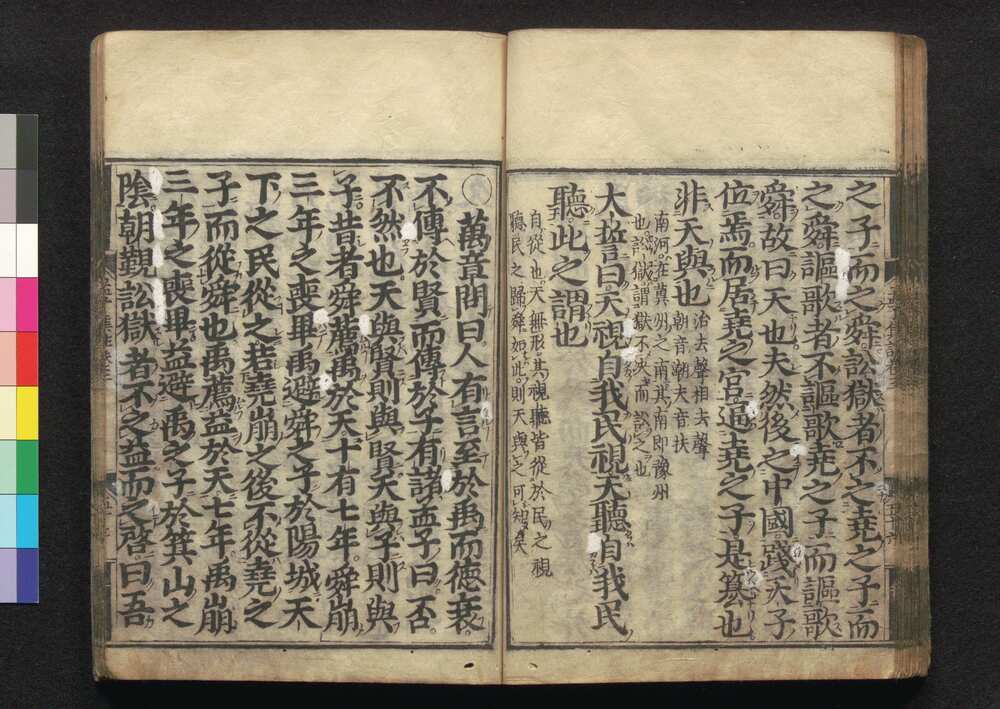 之子而之舜訟獄者不之堯之子而
之舜謳歌者不謳歌堯之子而謳歌
舜故曰天也夫然後之中國踐天子
位焉而居堯之宮逼堯之子是簒也
非天與也
治去聲相去聲
朝音潮夫音扶
南河在冀州之南其南即豫州
也訟獄謂獄不決而訟之也
大誓曰天視自我民視天聽自我民
聽此之謂也
自從也天無形其視聽皆從於民之視
聽民之歸舜如此則天與之可知矣
萬章問曰人有言至於禹而德衰
不傳於賢而傳於子有諸孟子曰否
不然也天與賢則與賢天與子則與
子昔者舜薦禹於天十有七年舜崩
三年之喪畢禹避舜之子於陽城天
下之民從之若堯崩之後不從堯之
子而從舜也禹薦益於天七年禹崩
三年之喪畢益避禹之子於箕山之
陰朝覲訟獄者不之益而之啓曰吾